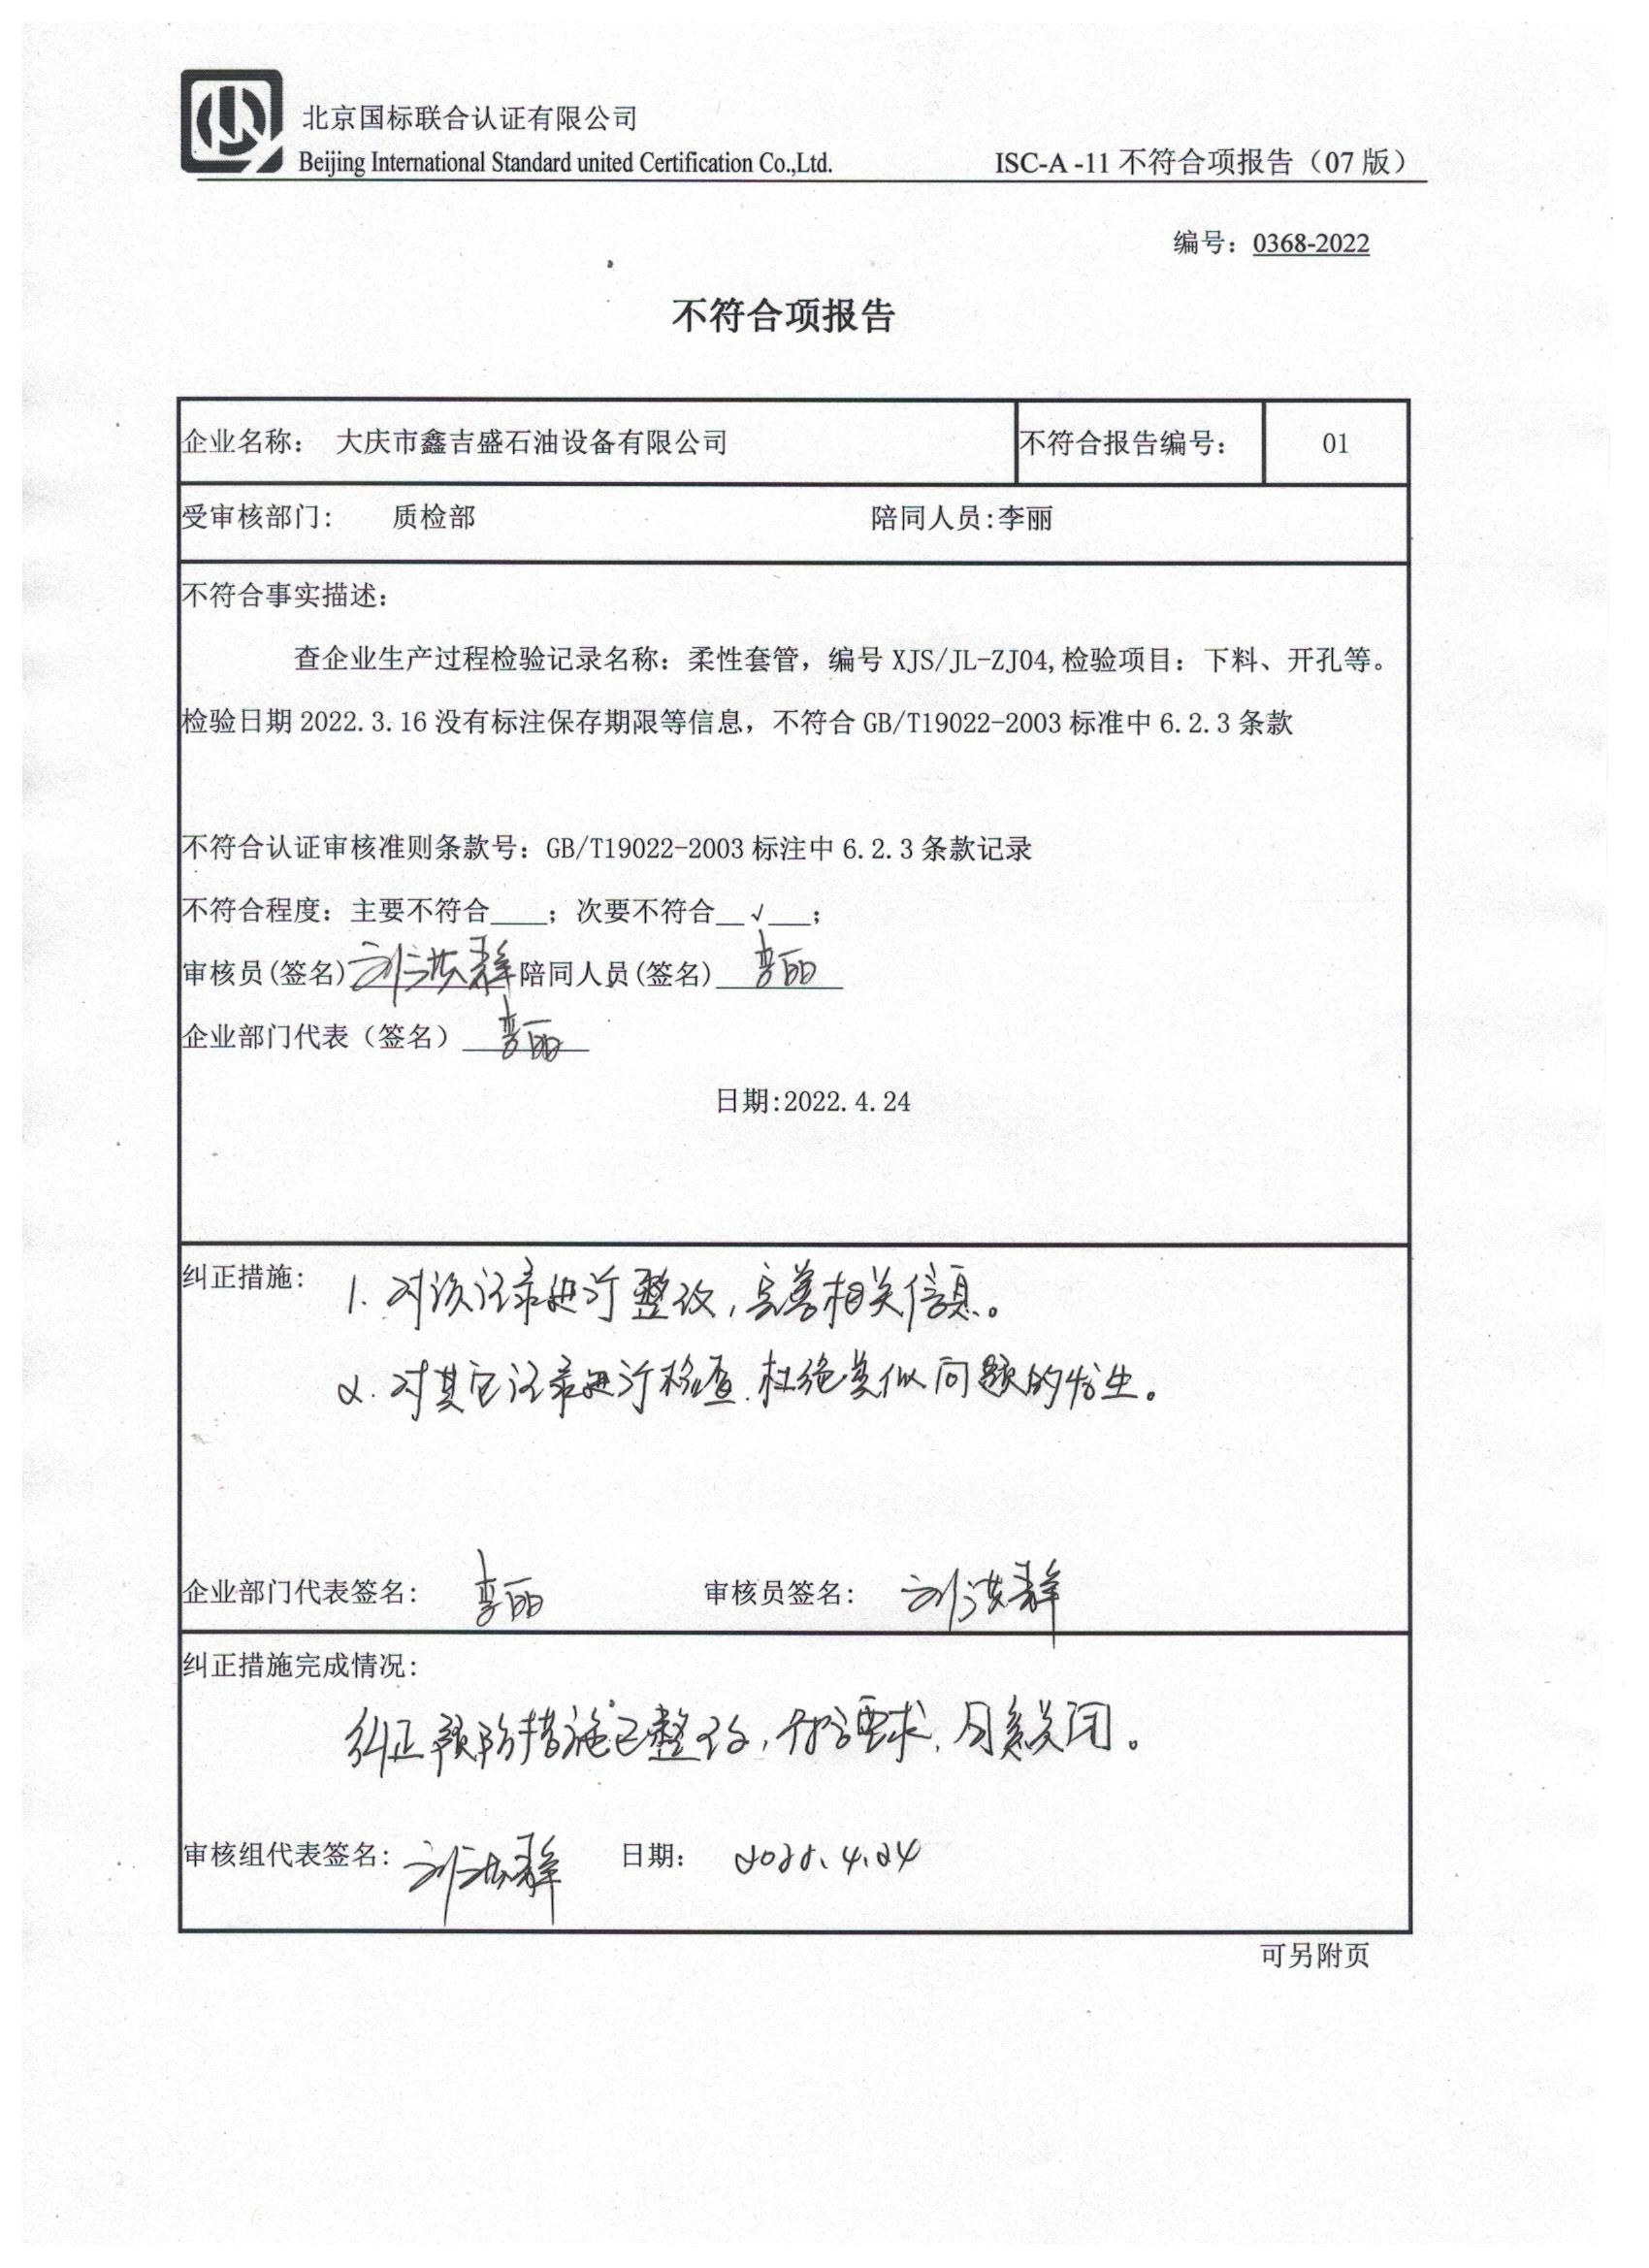 北京国标联合认证有限公司
Beijing International Standard united Certification Co.,Ltd.
ISC-A -11 不符合项报告（07 版）
编号：0368-2022
不符合项报告
企业名称： 大庆市鑫吉盛石油设备有限公司 不符合报告编号： 01
受审核部门： 质检部 陪同人员:李丽
不符合事实描述：
查企业生产过程检验记录名称：柔性套管，编号 XJS/JL-ZJ04,检验项目：下料、开孔等。
检验日期 2022.3.16 没有标注保存期限等信息，不符合 GB/T19022-2003 标准中 6.2.3 条款
不符合认证审核准则条款号：GB/T19022-2003 标注中 6.2.3 条款记录
不符合程度：主要不符合____；次要不符合__√___；
审核员(签名) 刘洪群 陪同人员(签名) 李丽
企业部门代表（签名） 李丽
日期:2022.4.24
纠正措施：
1. 对该记录进行整改，完善相关信息。
2. 对其它记录进行检查.杜绝类似问题的发生。
企业部门代表签名： 李丽 审核员签名： 刘洪群
纠正措施完成情况：
纠正预防措施已整改，符合要求，同意关闭。
审核组代表签名： 刘洪群 日期： 2022.4.24
可另附页